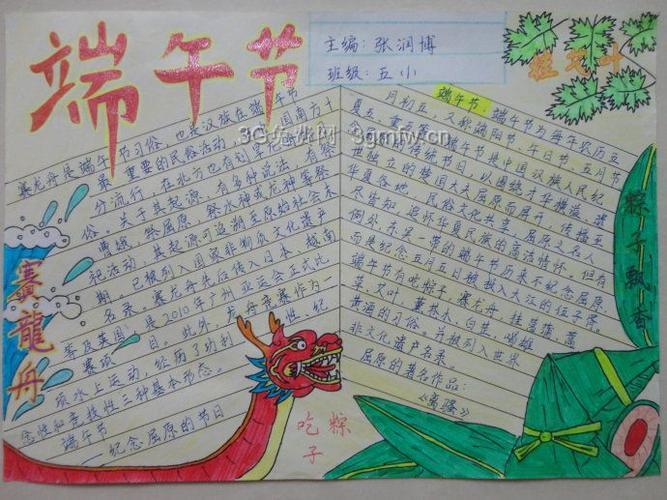 端午节
主编：张润博
班级：五小
挂艾叶
赛龙舟是端午节习俗，也是汉族在端午节
最重要的民俗活动，
3G
3gmfw.cn
分流行，在北方也有划旱龙
俗。关于其起源，有多种说法，有祭
曹娥，祭屈原，祭水神或龙神等祭
祀活动，其起源可追溯至原始社会末
期。已被列入国家非物质文化遗产
名录。赛龙舟先后传入日本、越南
等及英国，是2010年广州亚运会正式比
赛项目。此外，龙舟竞赛作为一
项水上运动，经历了功利性、纪
念性和竞技性三种基本形态。
端午节
——纪念屈原的节日
赛龍舟
端午节：端午节为每年农历五
月初五，又称端阳节、午日节、五月节
世独立的楚国大夫屈原而展开，传播至
华夏各地，民俗文化共享，屈原之名人
尽皆知，追怀华夏民族的高洁情怀。但有
例外，东吴一带的端午节历来不纪念屈原，
而是纪念五月五日被投入大江的伍子胥，
端午节有吃粽子，赛龙舟，挂菖蒲、蒿
草、艾叶，薰苍术、白芷，喝雄
普遍的习俗。并被列入世界
非文化遗产名录。
屈原的著名作品：
《离骚》
粽子飘香
吃粽子